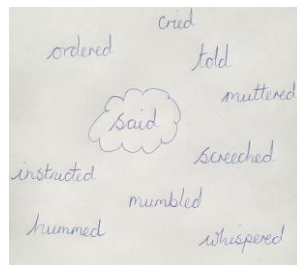 cried
ordered
told
muttered
said
screeched
instructed
mumbled
hummed
whispered